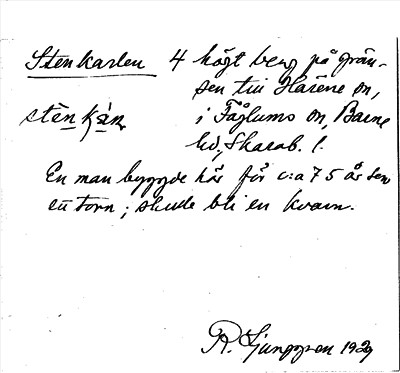 Stenkarlen 4 högt berg på grän-
sen till Härene sn,
stèn kàn i Fåglums sn, Barne
hd, Skarab. l.
En man byggde här för c:a 75 år sen
ett torn; skulle bli en kvarn.
R. Ljunggren 1929